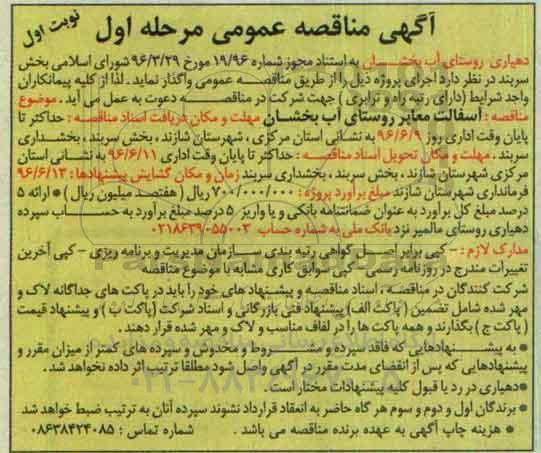 آگهی مناقصه عمومی مرحله اول
نوبت اول
دهیاری روستای آب بخشان به استناد مجوز شماره ۱۹/۹۶ مورخ ۹۶/۳/۲۹ شورای اسلامی بخش
سربند در نظر دارد اجرای پروژه ذیل را از طریق مناقصه عمومی واگذار نماید. لذا از کلیه پیمانکاران
واجد شرایط (دارای رتبه راه و ترابری) جهت شرکت در مناقصه دعوت به عمل می آید. موضوع
مناقصه: آسفالت معابر روستای آب بخشان مهلت و مکان دریافت اسناد مناقصه: حداکثر تا
پایان وقت اداری روز ۹۶/۶/۹ به نشانی استان مرکزی، شهرستان شازند، بخش سربند، بخشداری
سربند. مهلت و مکان تحویل اسناد مناقصه: حداکثر تا پایان وقت اداری ۹۶/۶/۱۱ به نشانی استان
مرکزی شهرستان شازند، بخش سربند، بخشداری سربند زمان و مکان گشایش پیشنهادها: ۹۶/۶/۱۳
فرمانداری شهرستان شازند مبلغ برآورد پروژه: ۷۰۰/۰۰۰/۰۰۰ ریال (هفتصد میلیون ریال) * ارائه ۵
درصد مبلغ کل برآورد به عنوان ضمانتنامه بانکی و یا واریز ۵ درصد مبلغ برآورد به حساب سپرده
دهیاری روستای مالمیر نزد بانک ملی به شماره حساب ۰۲۱۸۶۳۹۰۵۵۰۰۳
مدارک لازم: - کپی برابر اصل گواهی رتبه بندی سازمان مدیریت و برنامه ریزی - کپی آخرین
تغییرات مندرج در روزنامه رسمی - کپی سوابق کاری مشابه با موضوع مناقصه
شرکت کنندگان در مناقصه، اسناد مناقصه و پیشنهاد های خود را باید در پاکت های جداگانه لاک و
مهر شده شامل تضمین (پاکت الف) پیشنهاد فنی بازرگانی و اسناد شرکت (پاکت ب) و پیشنهاد قیمت
(پاکت ج) بگذارند و همه پاکت ها را در لفاف مناسب و لاک و مهر شده قرار دهند.
* به پیشنهادهایی که فاقد سپرده و مشروط و مخدوش و سپرده های کمتر از میزان مقرر و
پیشنهادهایی که پس از انقضای مدت مقرر در آگهی واصل شود مطلقا ترتیب اثر داده نخواهد شد.
* دهیاری در رد یا قبول کلیه پیشنهادات مختار است.
* برندگان اول و دوم و سوم هر گاه حاضر به انعقاد قرارداد نشوند سپرده آنان به ترتیب ضبط خواهد شد
* هزینه چاپ آگهی به عهده برنده مناقصه می باشد. شماره تماس: ۰۸۶۳۸۴۲۴۰۸۵